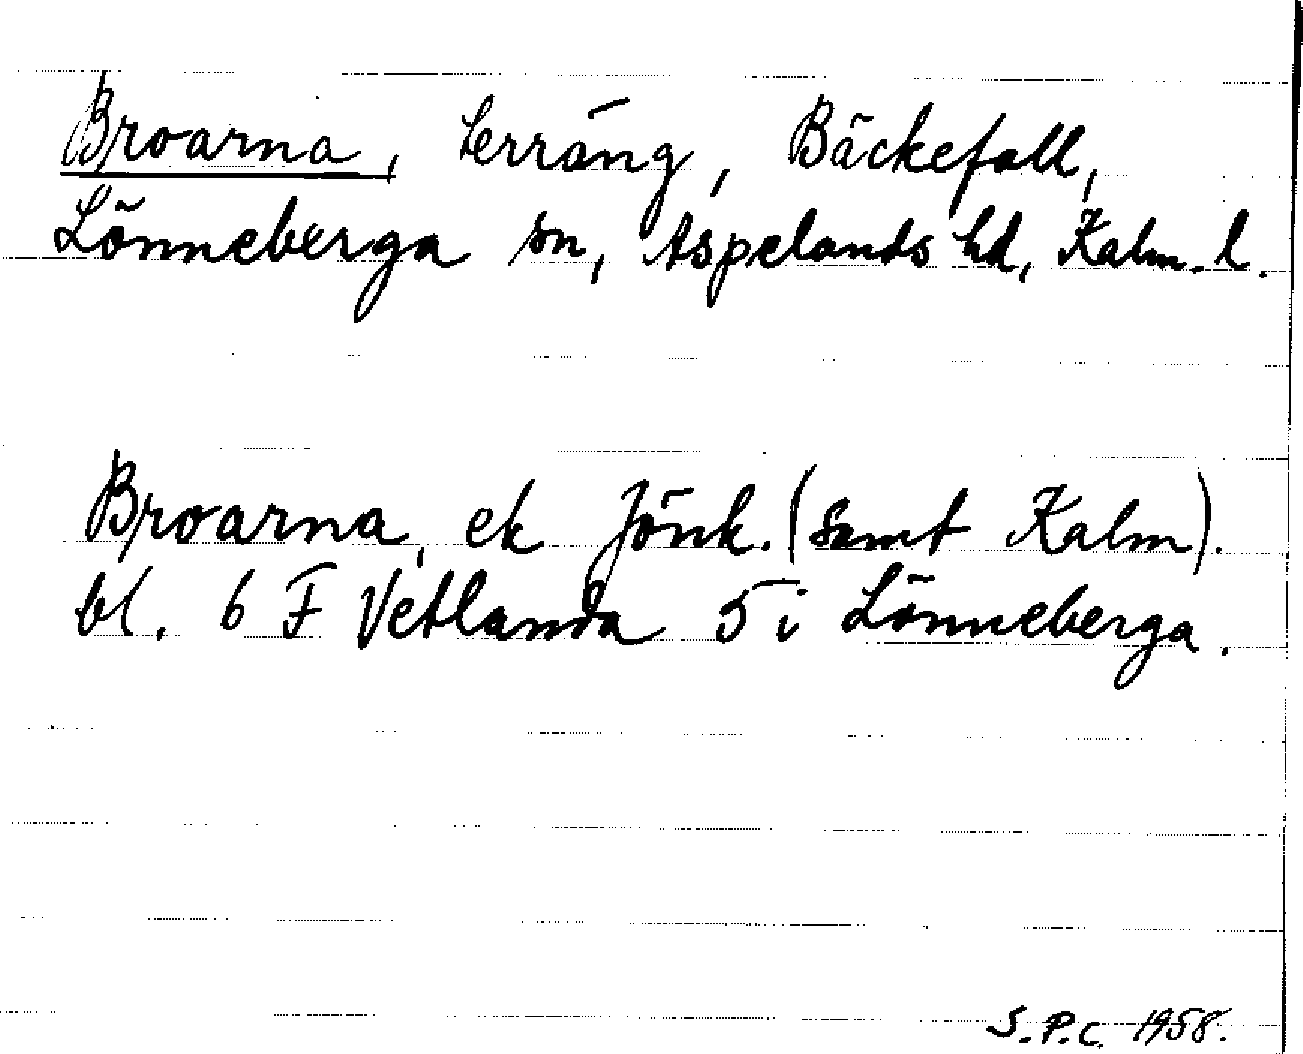 Broarna, terräng, Bäckefall,
Lönneberga sn, Aspelands hd, Kalm. l.
Broarna, ek Jönk. (samt Kalm).
bl. 6 F Vetlanda 5 i Lönneberga.
S.P.C. 1958.